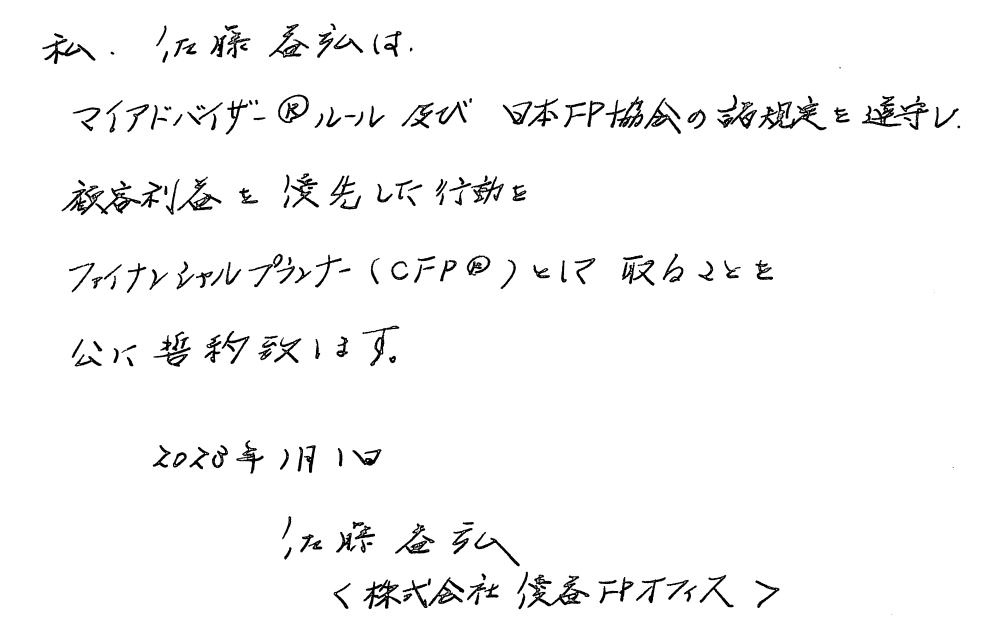 私、佐藤益弘は、
マイアドバイザー®ルール及び日本FP協会の諸規定を遵守し、
顧客利益を優先した行動を
ファイナンシャルプランナー(CFP®)として取ることを
公に誓約致します。
2023年1月1日
佐藤益弘
<株式会社優益FPオフィス>